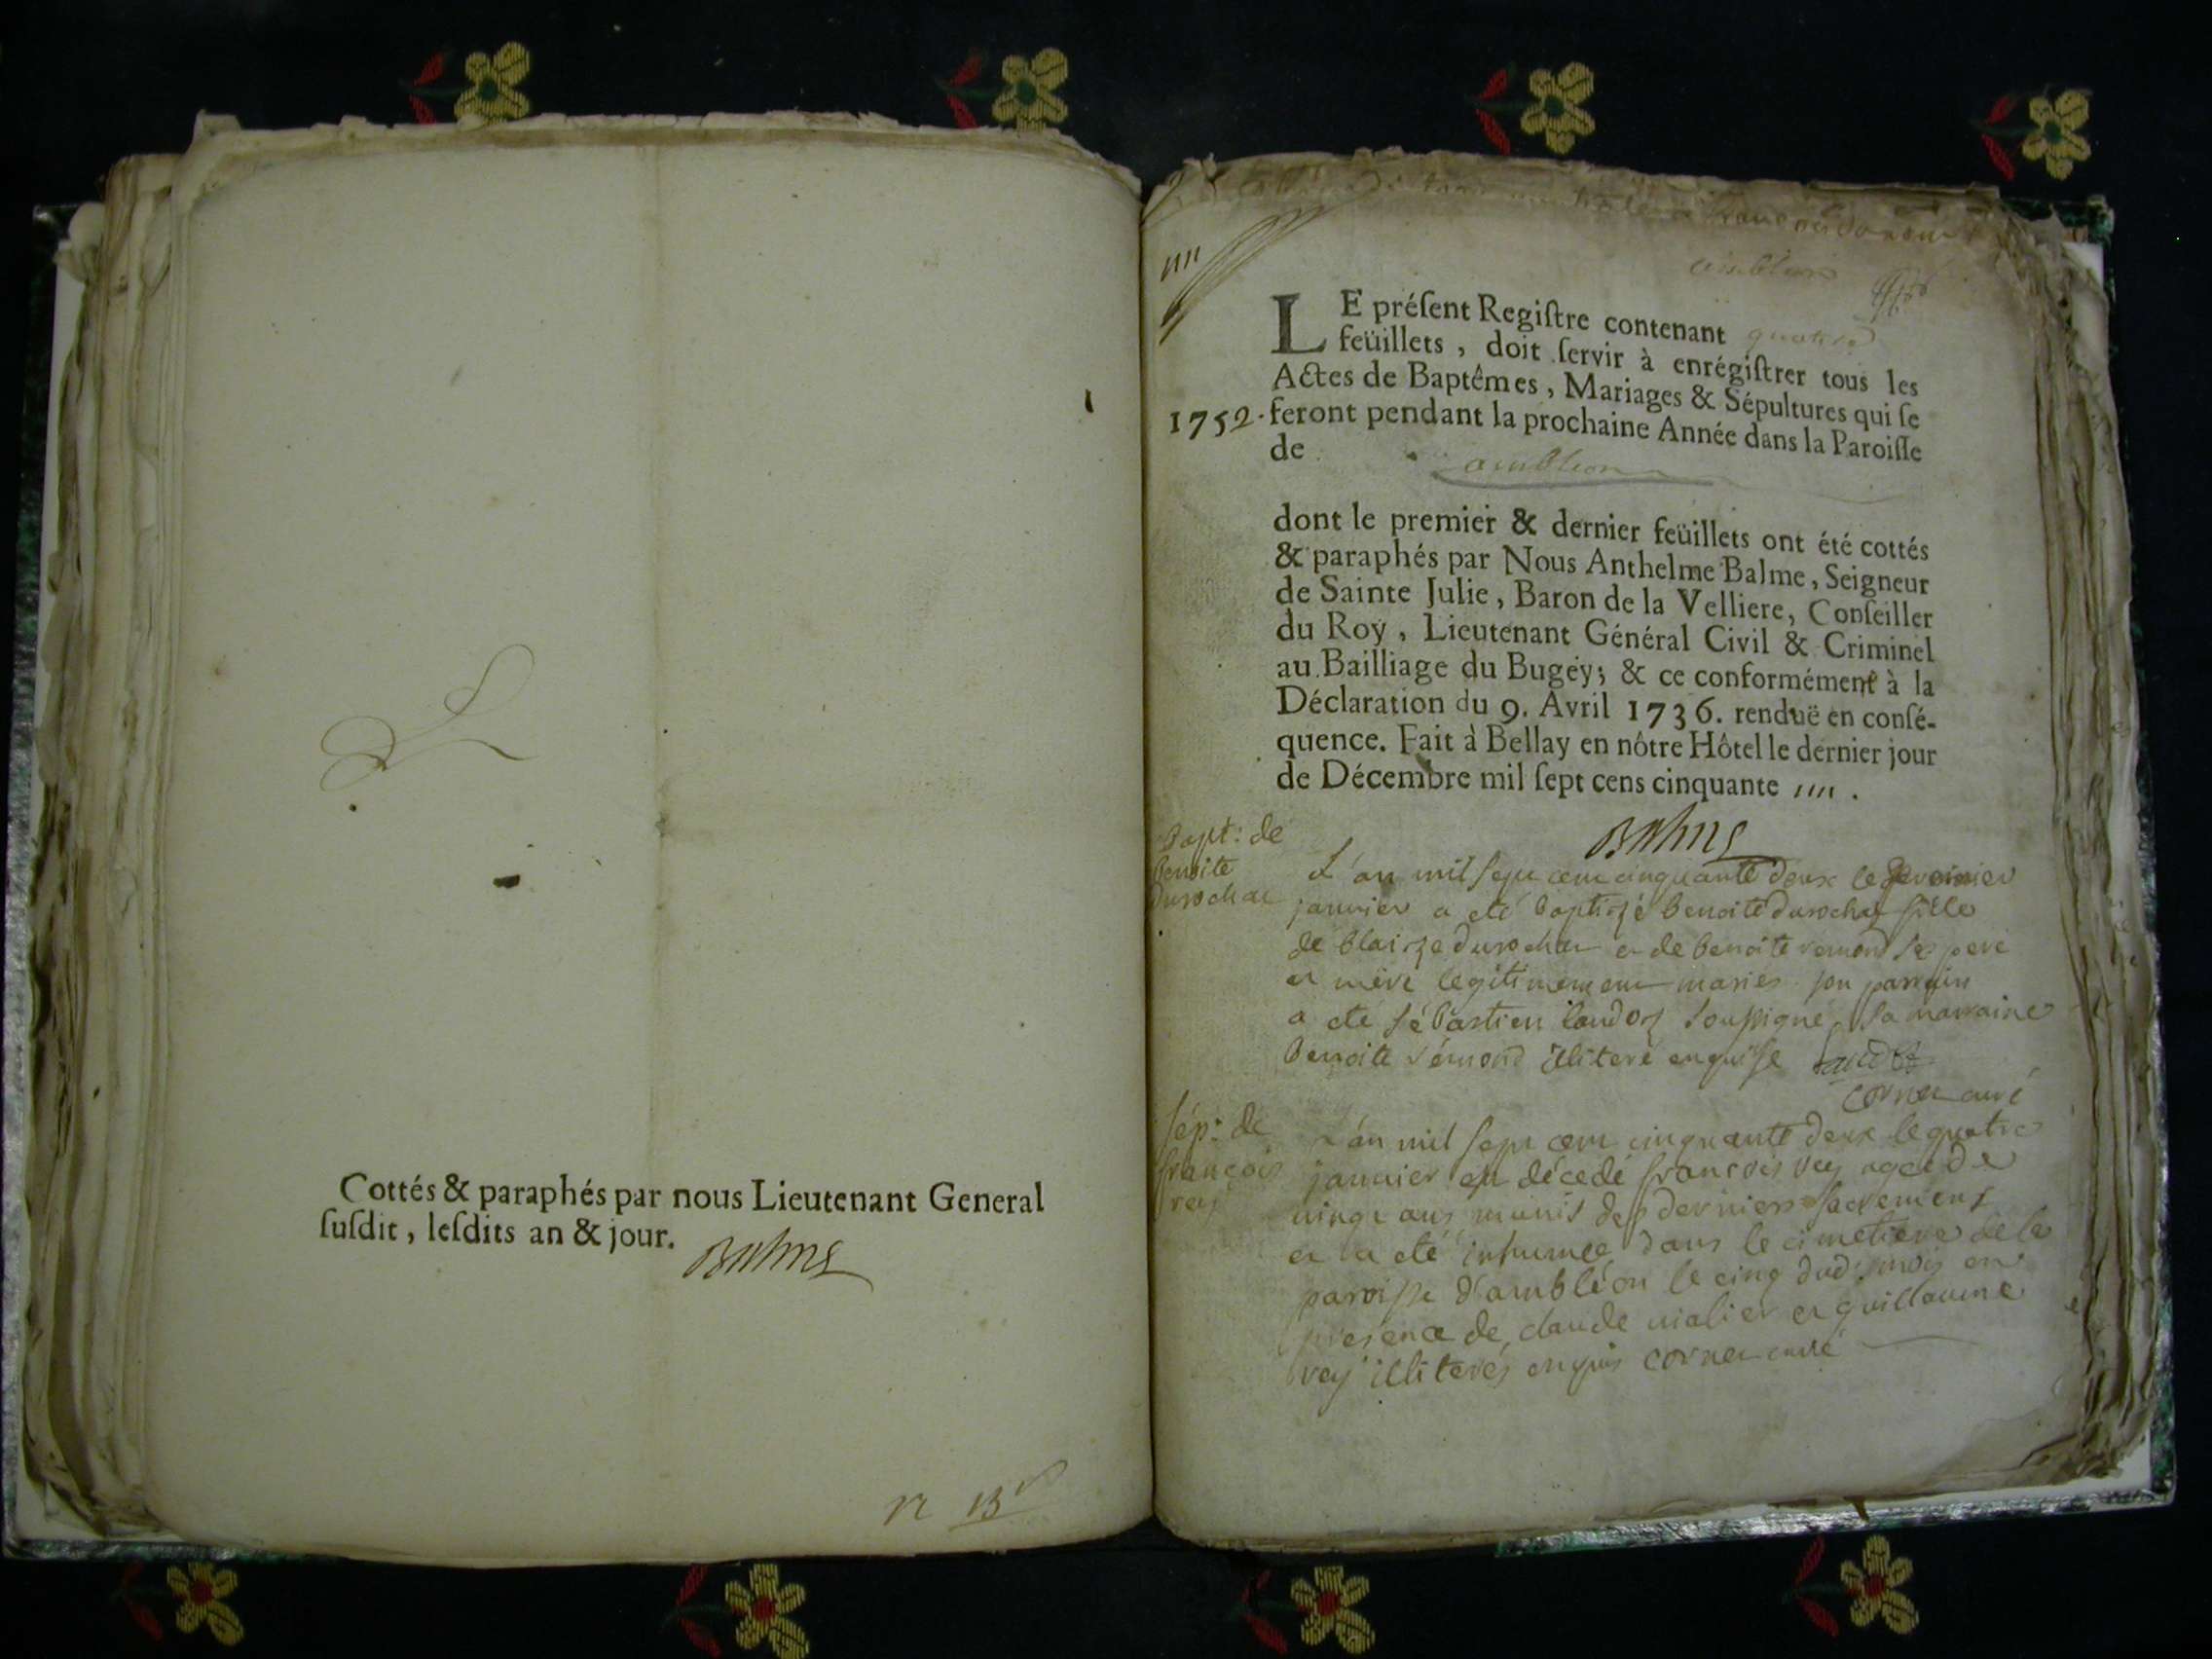 Cottés & paraphés par nous Lieutenant General
ſuſdit, leſdits an & jour.
Balme
LE préſent Regiſtre contenant
feüillets, doit ſervir à enrégiſtrer tous les
Actes de Baptêmes, Mariages & Sépultures qui ſe
1752. feront pendant la prochaine Année dans la Paroiſſe
de ambleon
dont le premier & dernier feüillets ont été cottés
& paraphés par Nous Anthelme Balme, Seigneur
de Sainte Julie, Baron de la Velliere, Conſeiller
du Roy, Lieutenant Général Civil & Criminel
au Bailliage du Bugey; & ce conformément à la
Déclaration du 9. Avril 1736. renduë en conſé-
quence. Fait à Bellay en nôtre Hôtel le dernier jour
de Décembre mil ſept cens cinquante
Balme
Bapt: de
benoite
durochat
L'an mil sept cent cinquante deux le
janvier a eté baptizé benoite durochat fille
de blaize durochat et de benoite remond ses pere
et mére legitimement mariés. son parrain
a eté sébastien soussigné, sa marraine
benoite rémond illiteré enquise
cornu curé
sép: de
françois
rey
L'an mil sept cent cinquante deux le quatre
janvier est décedé francois rey agee de
vingt ans munis des derniers sacremens
et a eté inhumee dans le cimetiere de la
paroisse d'ambléon le cinq dud: mois en
presence de claude vialier et guillaume
rey illiterés enquis cornu curé